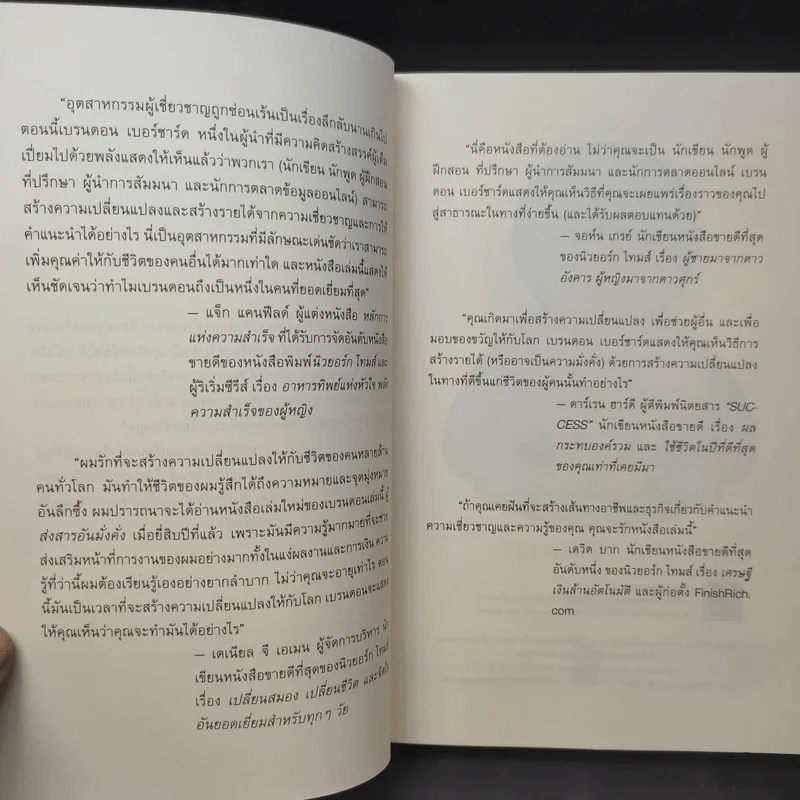 “อุตสาหกรรมผู้เชี่ยวชาญถูกซ่อนเร้นเป็นเรื่องลึกลับนานเกินไป
ตอนนี้เบรนดอน เบอร์ชาร์ด หนึ่งในผู้นำที่มีความคิดสร้างสรรค์ผู้เต็ม
เปี่ยมไปด้วยพลังแสดงให้เห็นแล้วว่าพวกเรา (นักเขียน นักพูด ผู้ฝึกสอน
ที่ปรึกษา ผู้นำการสัมมนา และนักการตลาดข้อมูลออนไลน์) สามารถ
สร้างความเปลี่ยนแปลงและสร้างรายได้จากความเชี่ยวชาญและการให้
คำแนะนำได้อย่างไร นี่เป็นอุตสาหกรรมที่มีลักษณะเด่นชัดว่าเราสามารถ
เพิ่มคุณค่าให้กับชีวิตของคนอื่นได้มากเท่าใด และหนังสือเล่มนี้แสดงให้
เห็นชัดเจนว่าทำไมเบรนดอนถึงเป็นหนึ่งในคนที่ยอดเยี่ยมที่สุด”
– แจ็ก แคนฟิลด์ ผู้แต่งหนังสือ หลักการ
แห่งความสำเร็จ ที่ได้รับการจัดอันดับหนังสือ
ขายดีของหนังสือพิมพ์นิวยอร์ก ไทมส์ และ
ผู้ริเริ่มซีรีส์ เรื่อง อาหารทิพย์แห่งหัวใจ พลัง
ความสำเร็จของผู้หญิง
“ผมรักที่จะสร้างความเปลี่ยนแปลงให้กับชีวิตของคนหลายล้าน
คนทั่วโลก มันทำให้ชีวิตของผมรู้สึกได้ถึงความหมายและจุดมุ่งหมาย
อันลึกซึ้ง ผมปรารถนาจะได้อ่านหนังสือเล่มใหม่ของเบรนดอนเล่มนี้
ส่งสารอันมั่งคั่ง เมื่อยี่สิบปีที่แล้ว เพราะมันมีความรู้มากมายที่จะช่วย
ส่งเสริมหน้าที่การงานของผมอย่างมากทั้งในแง่ผลงานและการเงิน ความ
รู้ที่ว่านี้ผมต้องเรียนรู้เองอย่างยากลำบาก ไม่ว่าคุณจะอายุเท่าไร ตอน
นี้มันเป็นเวลาที่จะสร้างความเปลี่ยนแปลงให้กับโลก เบรนดอนจะแสดง
ให้คุณเห็นว่าคุณจะทำมันได้อย่างไร”
– เดเนียล จี เอเมน ผู้จัดการบริหาร นัก
เขียนหนังสือขายดีที่สุดของนิวยอร์ก ไทมส์
เรื่อง เปลี่ยนสมอง เปลี่ยนชีวิต และจิตใจ
อันยอดเยี่ยมสำหรับทุกๆ วัย
“นี่คือหนังสือที่ต้องอ่าน ไม่ว่าคุณจะเป็น นักเขียน นักพูด ผู้
ฝึกสอน ที่ปรึกษา ผู้นำการสัมมนา และนักการตลาดออนไลน์ เบรน
ดอน เบอร์ชาร์ดแสดงให้คุณเห็นวิธีที่คุณจะเผยแพร่เรื่องราวของคุณไป
สู่สาธารณะในทางที่ง่ายขึ้น (และได้รับผลตอบแทนด้วย)”
– จอห์น เกรย์ นักเขียนหนังสือขายดีที่สุด
ของนิวยอร์ก ไทมส์ เรื่อง ผู้ชายมาจากดาว
อังคาร ผู้หญิงมาจากดาวศุกร์
“คุณเกิดมาเพื่อสร้างความเปลี่ยนแปลง เพื่อช่วยผู้อื่น และเพื่อ
มอบของขวัญให้กับโลก เบรนดอน เบอร์ชาร์ดแสดงให้คุณเห็นวิธีการ
สร้างรายได้ (หรืออาจเป็นความมั่งคั่ง) ด้วยการสร้างความเปลี่ยนแปลง
ในทางที่ดีขึ้นแก่ชีวิตของผู้คนนั้นทำอย่างไร”
– ดาร์เรน ฮาร์ดี ผู้ตีพิมพ์นิตยสาร “SUC-
CESS” นักเขียนหนังสือขายดี เรื่อง ผล
กระทบองค์รวม และ ใช้ชีวิตในปีที่ดีที่สุด
ของคุณเท่าที่เคยมีมา
“ถ้าคุณเคยฝันที่จะสร้างเส้นทางอาชีพและธุรกิจเกี่ยวกับคำแนะนำ
ความเชี่ยวชาญและความรู้ของคุณ คุณจะรักหนังสือเล่มนี้”
– เดวิด บาก นักเขียนหนังสือขายดีที่สุด
อันดับหนึ่ง ของนิวยอร์ก ไทมส์ เรื่อง เศรษฐี
เงินล้านอัตโนมัติ และผู้ก่อตั้ง FinishRich.
com